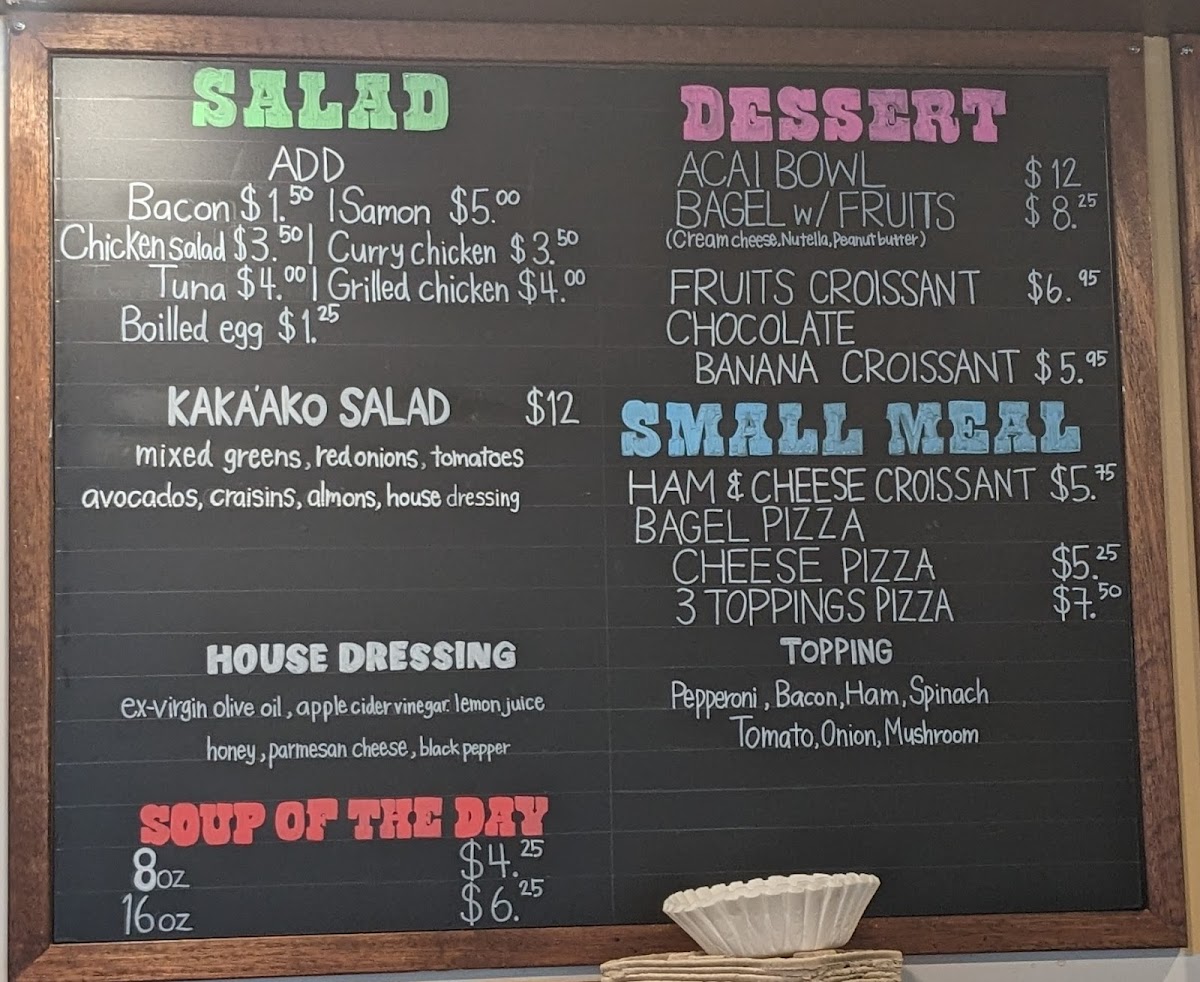 SALAD
ADD
Bacon $1.50 | Samon $5.00
Chicken salad $3.50 | Curry chicken $3.50
Tuna $4.00 | Grilled chicken $4.00
Boilled egg $1.25
KAKA'AKO SALAD $12
mixed greens, red onions, tomatoes
avocados, craisins, almons, house dressing
HOUSE DRESSING
ex-virgin olive oil, apple cider vinegar. lemon juice
honey, parmesan cheese, black pepper
SOUP OF THE DAY
8oz $4.25
16oz $6.25
DESSERT
ACAI BOWL $12
BAGEL w/ FRUITS $8.25
(Cream cheese, Nutella, Peanut butter)
FRUITS CROISSANT $6.95
CHOCOLATE
BANANA CROISSANT $5.95
SMALL MEAL
HAM & CHEESE CROISSANT $5.75
BAGEL PIZZA
CHEESE PIZZA $5.25
3 TOPPINGS PIZZA $7.50
TOPPING
Pepperoni, Bacon, Ham, Spinach
Tomato, Onion, Mushroom